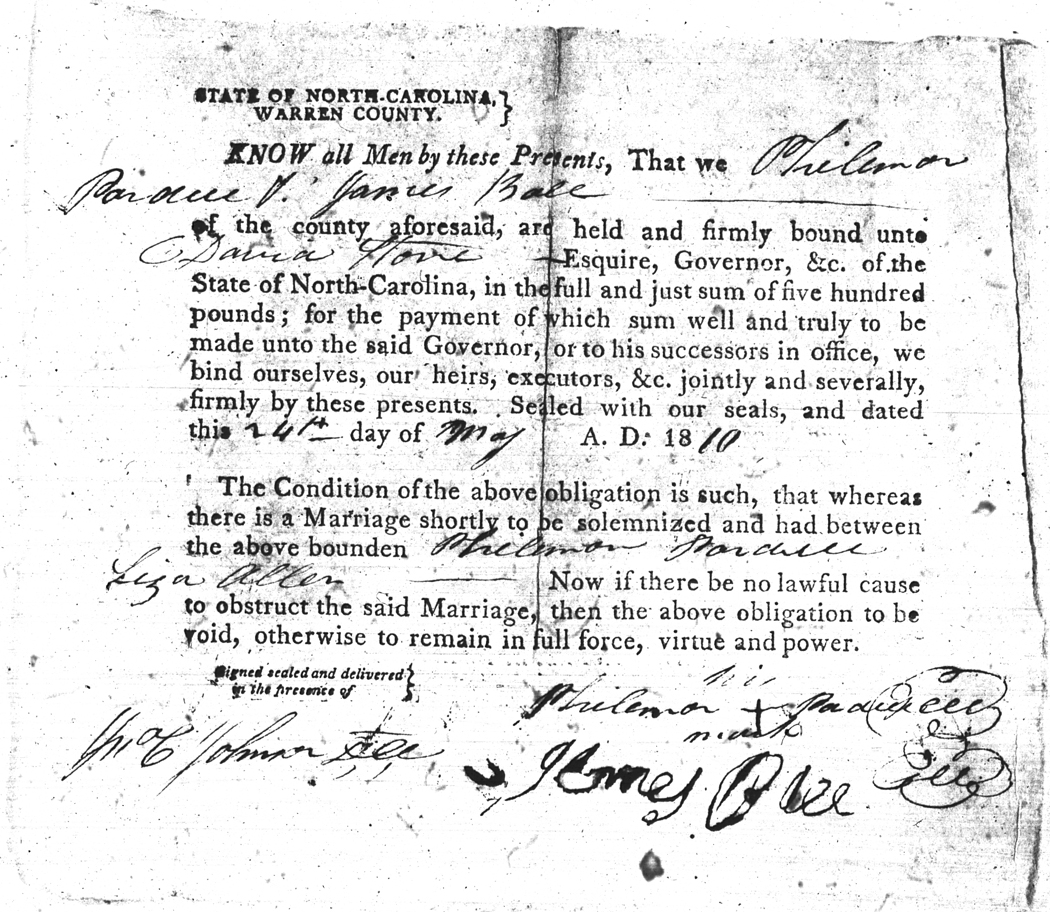 STATE OF NORTH-CAROLINA, }
WARREN COUNTY.
KNOW all Men by these Presents, That we Philemon
Pardue & James Ball
of the county aforesaid, are held and firmly bound unto
David Stone Esquire, Governor, &c. of the
State of North-Carolina, in the full and just sum of five hundred
pounds; for the payment of which sum well and truly to be
made unto the said Governor, or to his successors in office, we
bind ourselves, our heirs, executors, &c. jointly and severally,
firmly by these presents. Sealed with our seals, and dated
this 24th day of May A. D. 1810
The Condition of the above obligation is such, that whereas
there is a Marriage shortly to be solemnized and had between
the above bounden Philemon Pardue
Liza Allen Now if there be no lawful cause
to obstruct the said Marriage, then the above obligation to be
void, otherwise to remain in full force, virtue and power.
Signed sealed and delivered }
in the presence of
his
Philemon + Pardue
mark
Johnson
James